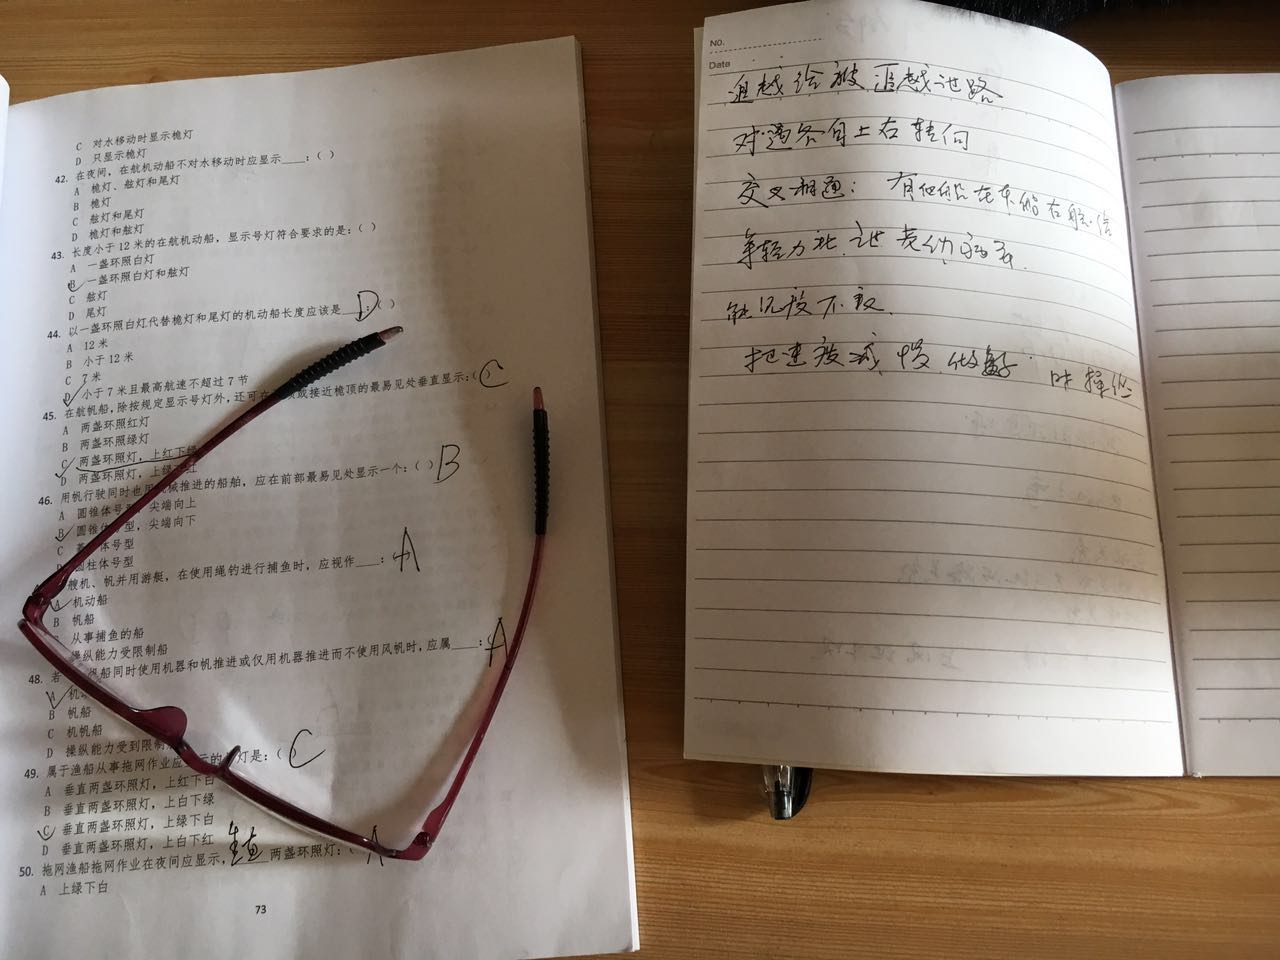 C 对水移动时显示桅灯
D 只显示桅灯
42. 在夜间，在航机动船不对水移动时应显示____：( )
A 桅灯、舷灯和尾灯
B 桅灯
C 舷灯和尾灯
D 桅灯和舷灯
43. 长度小于 12 米的在航机动船，显示号灯符合要求的是：( )
A 一盏环照白灯
B 一盏环照白灯和舷灯
C 舷灯
D 尾灯
44. 以一盏环照白灯代替桅灯和尾灯的机动船长度应该是____：( ) D
A 12 米
B 小于 12 米
C 7 米
D 小于 7 米且最高航速不超过 7 节
45. 在航帆船，除按规定显示号灯外，还可在 或接近桅顶的最易见处垂直显示：( ) C
A 两盏环照红灯
B 两盏环照绿灯
C 两盏环照灯，上红下绿
D 两盏环照灯，上绿 红
46. 用帆行驶同时也用 械推进的船舶，应在前部最易见处显示一个：( ) B
A 圆锥体号型，尖端向上
B 圆锥体号型，尖端向下
C 体号型
D 圆柱体号型
艘机、帆并用游艇，在使用绳钓进行捕鱼时，应视作____： A
A 机动船
B 帆船
从事捕鱼的船
操纵能力受限制船
48. 若 帆船同时使用机器和帆推进或仅用机器推进而不使用风帆时，应属____： A
A 机
B 帆船
C 机帆船
D 操纵能力受到限制
49. 属于渔船从事拖网作业应 示的 灯是：( ) C
A 垂直两盏环照灯，上红下白
B 垂直两盏环照灯，上白下绿
C 垂直两盏环照灯，上绿下白
D 垂直两盏环照灯，上白下红
50. 拖网渔船拖网作业在夜间应显示， 垂直 两盏环照灯：( A
A 上绿下白
73
No.
Date
追越给被追越让路
对遇各自上右转向
交叉相遇： 有他船在本船右舷
把速度减慢